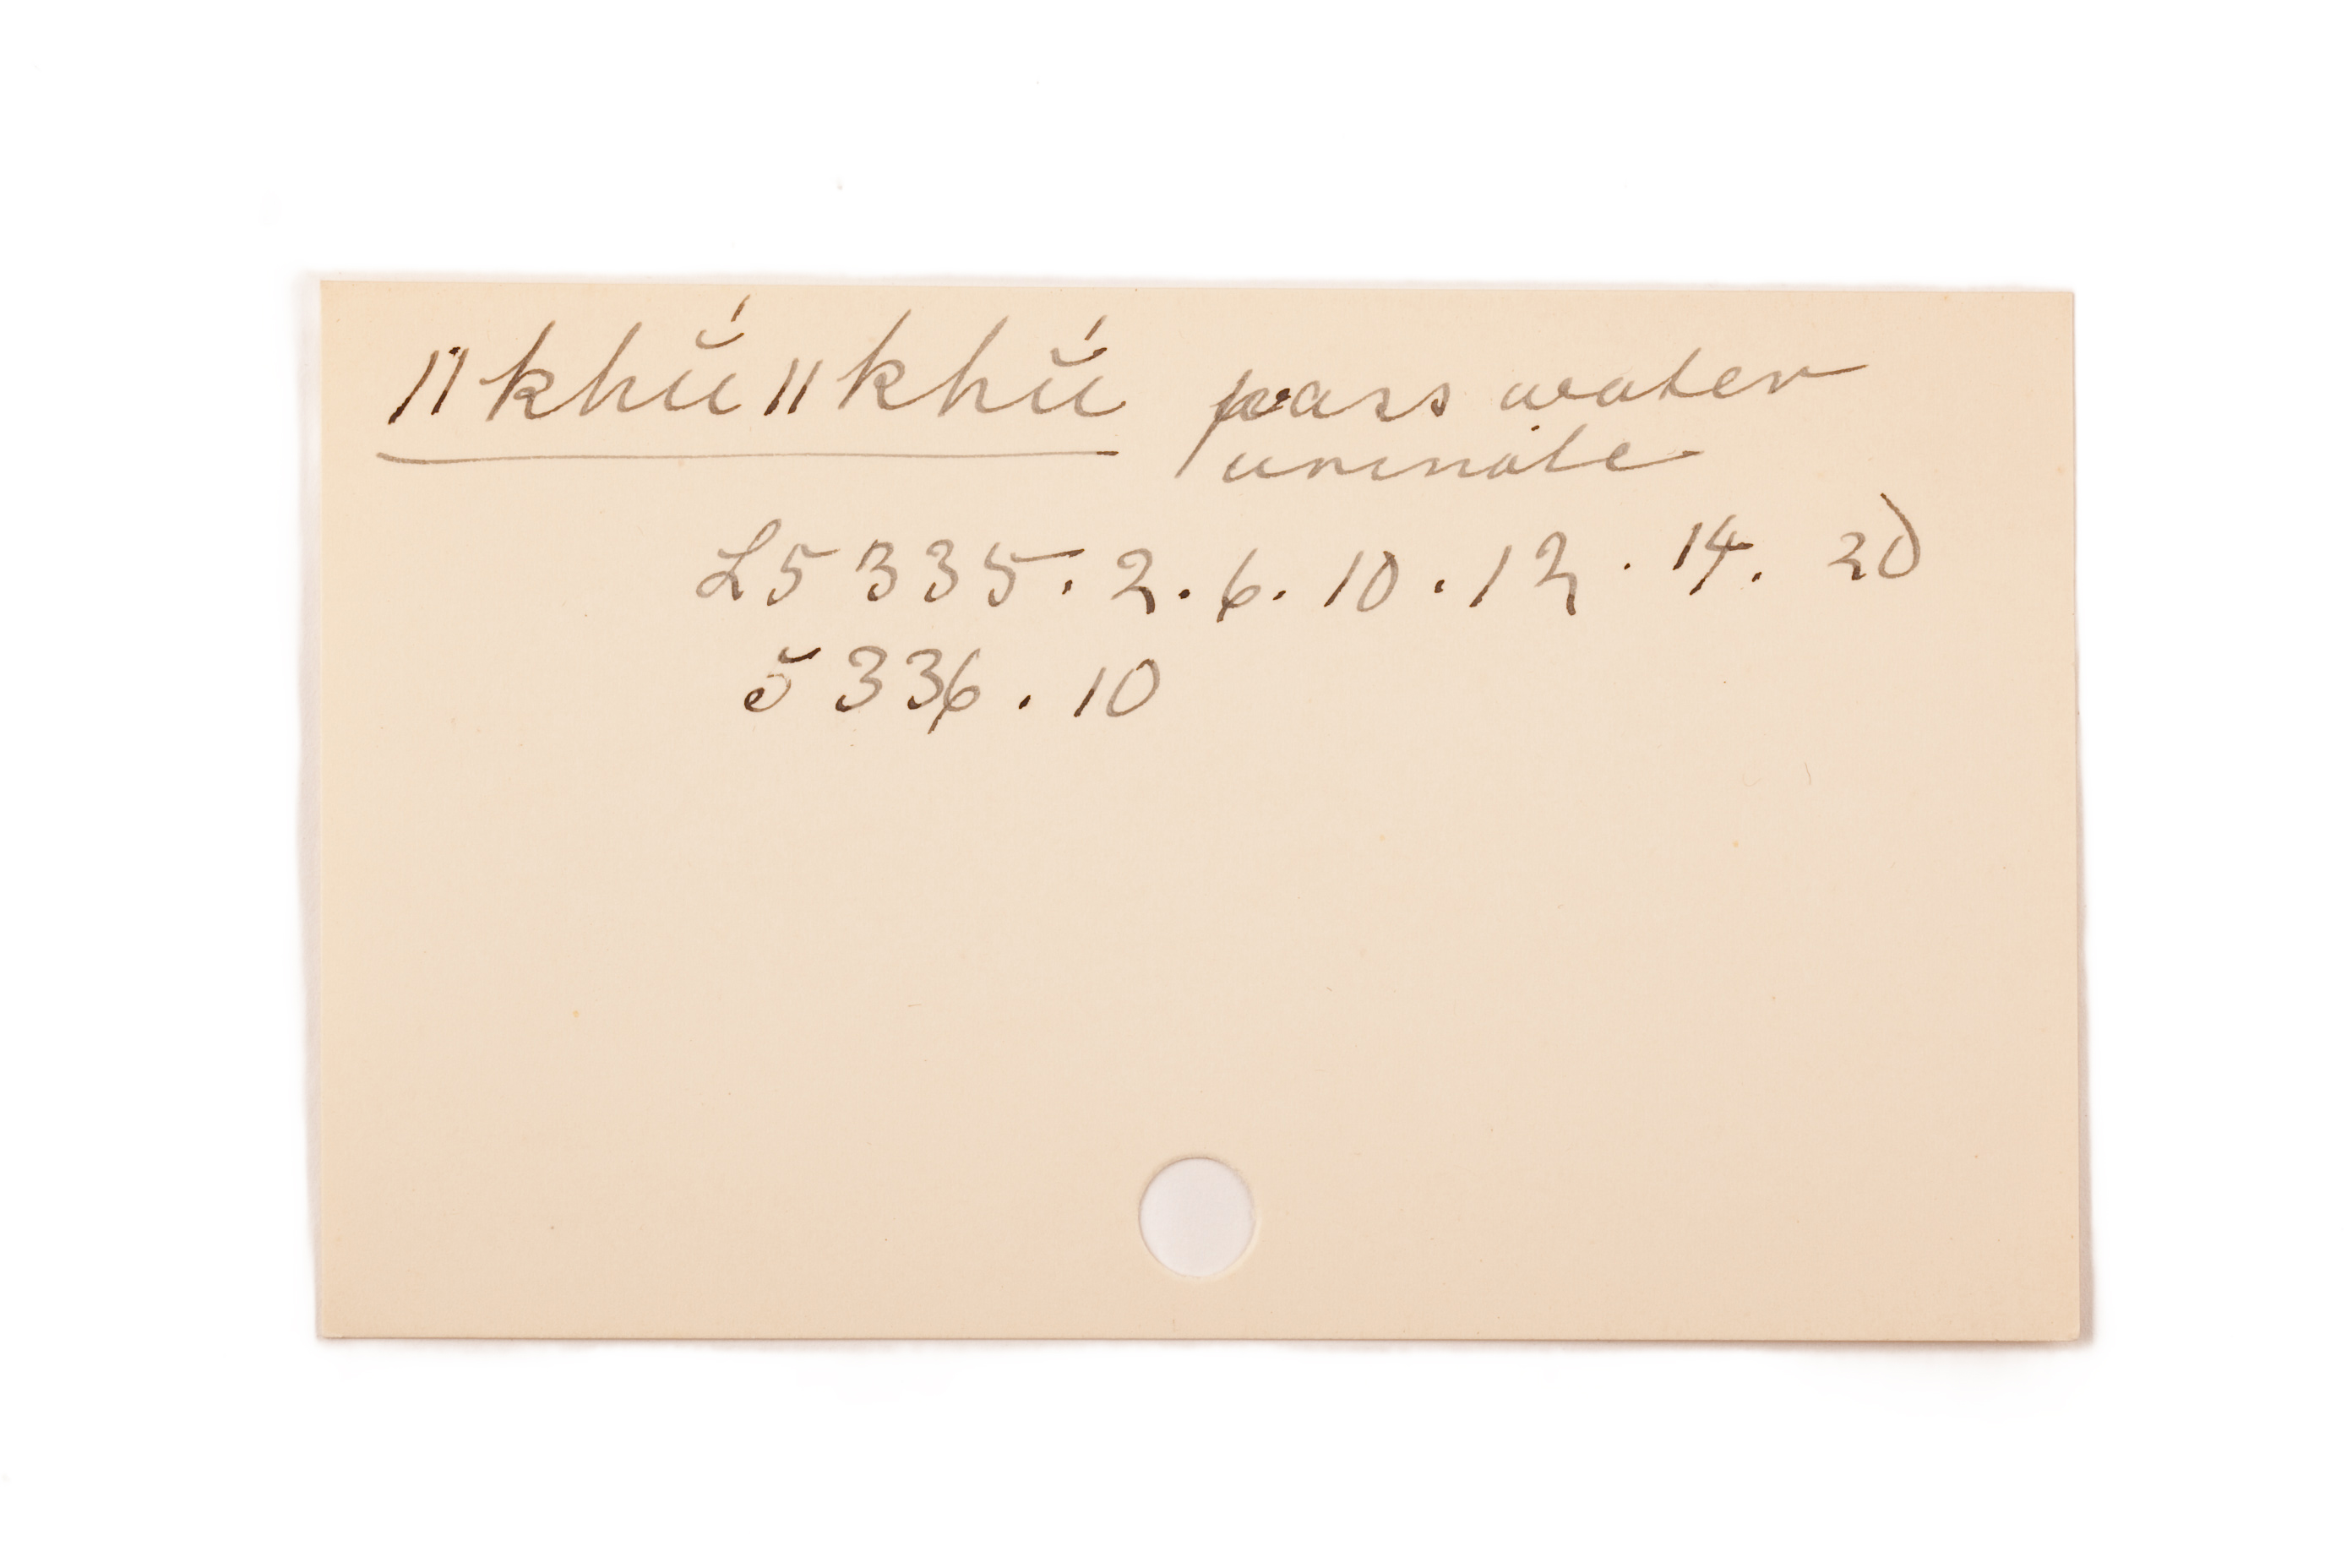 ǁkhŭ́ǁkhŭ́ pass water
urinate
L5335.2.6.10.12.14.20
5336.10